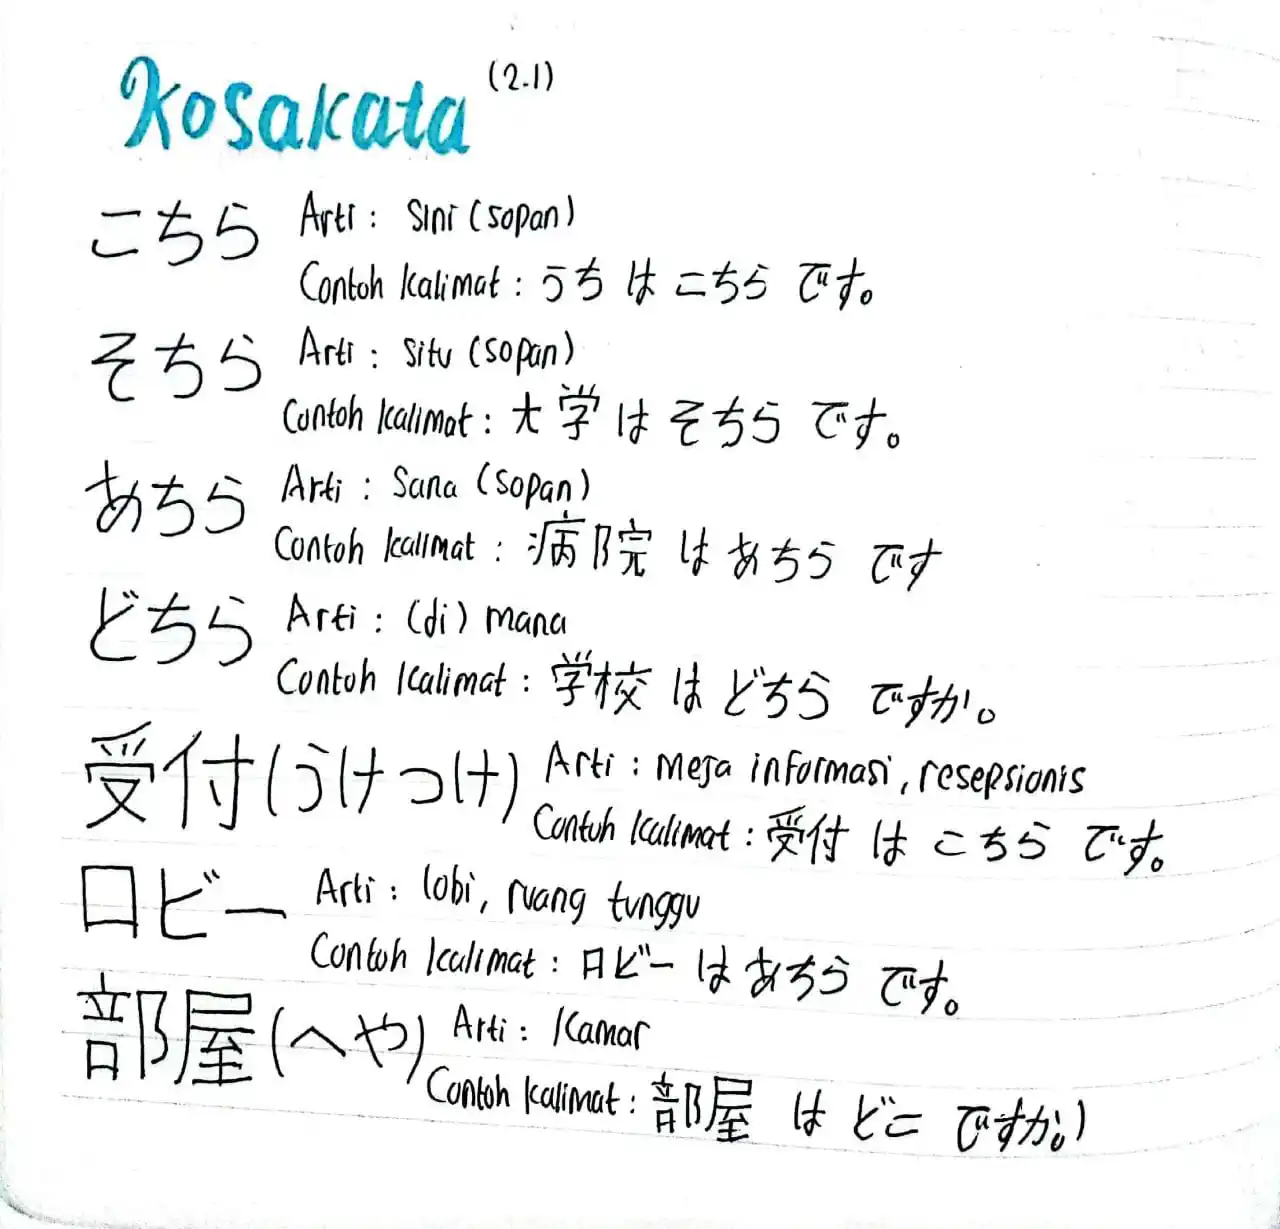 Kosakata (2.1)
こちら Arti : Sini (sopan)
Contoh kalimat : うち は こちら です。
そちら Arti : situ (sopan)
Contoh kalimat : 大学 は そちら です。
あちら Arti : Sana (sopan)
Contoh kalimat : 病院 は あちら です
どちら Arti : (di) mana
Contoh kalimat : 学校 は どちら ですか。
受付(うけつけ) Arti : meja informasi, resepsionis
Contoh kalimat : 受付 は こちら です。
ロビー Arti : lobi, ruang tunggu
Contoh kalimat : ロビー は あちら です。
部屋(へや) Arti : Kamar
Contoh kalimat : 部屋 は どこ ですか。)